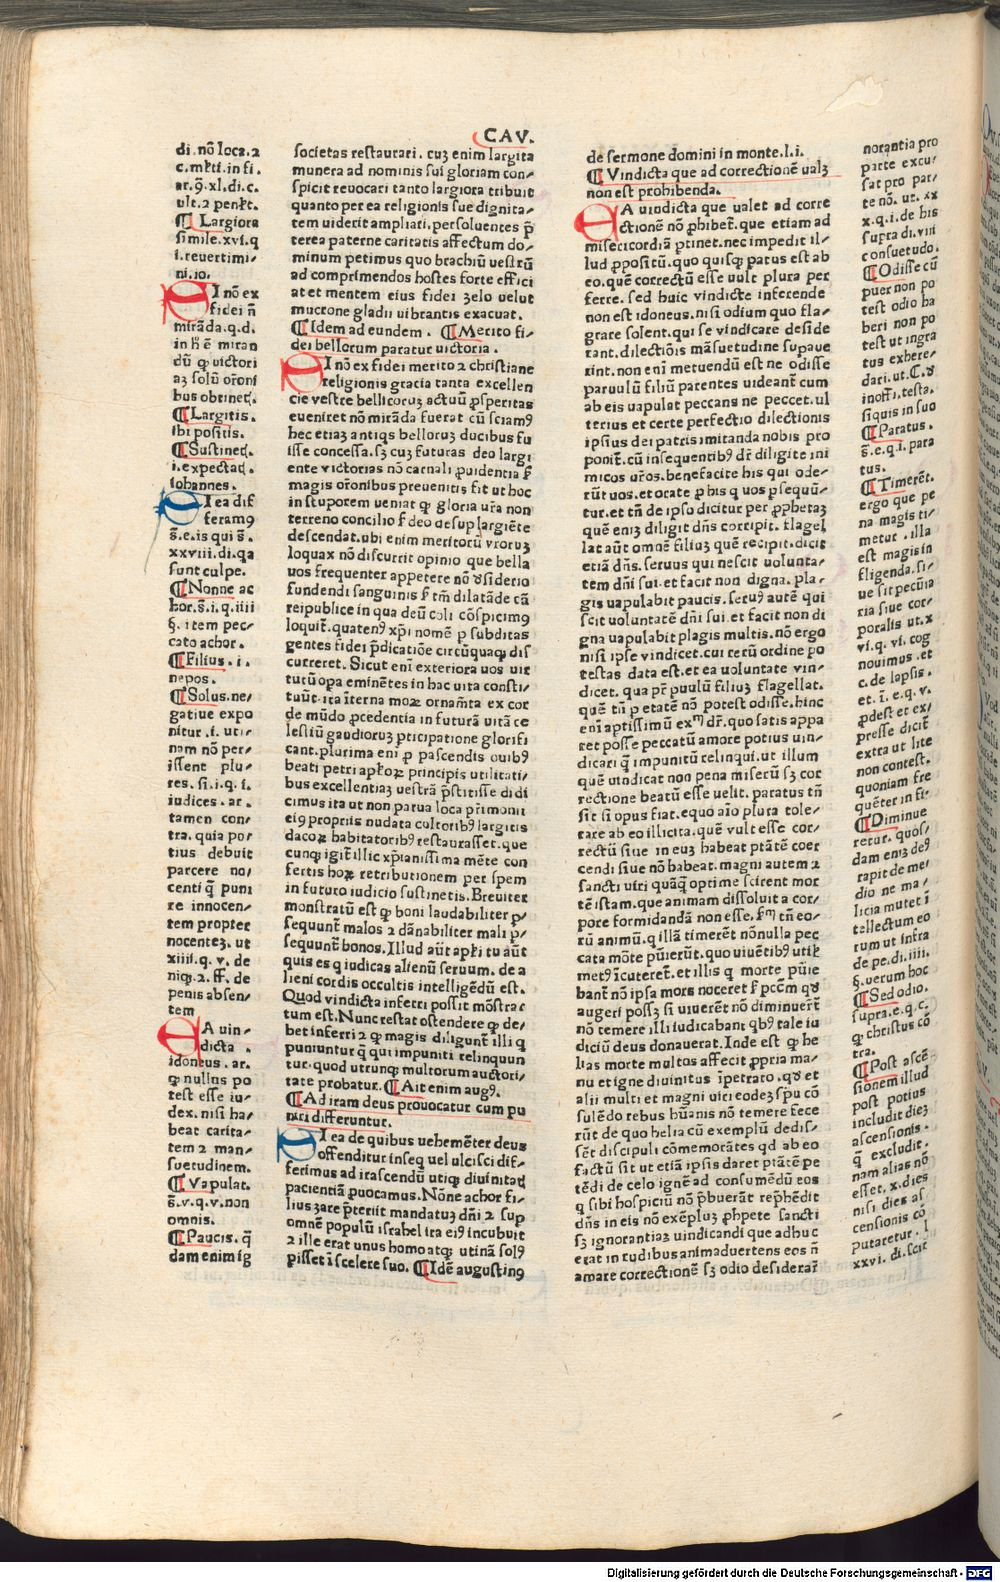 CAV.
di. nō loca. ⁊
c. mr̄ti. in fi.
ar. 9. xl. di. c.
ult. ⁊ penl't.
¶ Largiora
simile. xvi. q
i. reuertimi/
ni. io.
SI nō ex
fidei n̄
mirāda. q. d.
in h̄ ē miran
dū ꝙ uictori
aꝫ solū or̄oni
bus obtinet.
¶ Largitis.
ibi positis.
¶ Sustinet.
i. expectat.
iohannes.
SI ea dif
feram9
s̄. e. is qui s̄.
xxviii. di. qa
sunt culpe.
¶ Nonne ac
hor. s̄. i. q. iiii
§. item pec/
cato achor.
¶ Filius. i.
nepos.
¶ Solus. ne/
gatiue expo
nitur. i. uti/
nam nō per/
issent plu/
res. si. i. q. i.
iudices. ar.
tamen con/
tra. quia po/
tius debuit
parcere no/
centi q̄ puni
re innocen/
tem propter
nocenteꝫ. ut
xiiii. q. v. de
niqꝫ. ⁊. ff. de
penis absen/
tem
EA uin/
dicta.
idoneus. ar.
ꝙ nullus po
test esse iu/
dex. nisi ha/
beat carita/
tem ⁊ man/
suetudinem.
¶ Vapulat.
s̄. v. q. v. non
omnis.
¶ Paucis. q̄
dam enim ig
societas restaurari. cuꝫ enim largita
munera ad nominis sui gloriam con/
spicit reuocari tanto largiora tribuit
quanto per ea religionis sue dignita/
tem uiderit ampliari. persoluentes p̄
terea paterne caritatis affectum do/
minum petimus quo brachiū uestrū
ad comprimendos hostes forte effici
at et mentem eius fidei ꝫelo uelut
mucrone gladii uibrantis exacuat.
¶ Idem ad eundem. ¶ Merito fi/
dei bellorum paratur uictoria.
SI nō ex fidei merito ⁊ christiane
religionis gracia tanta excellen
cie vestre bellicoruꝫ actuū ꝓsperitas
eueniret nō mirāda fuerat cū sciam9
hec etiaꝫ antiqs belloruꝫ ducibus fu
isse concessa. sꝫ cuꝫ futuras deo largi
ente victorias nō carnali ꝓuidentia f̄
magis or̄onibus preuenitis fit ut hoc
in stuporem ueniat ꝙ gloria ur̄a non
terreno concilio f̄ deo desup largiēte
descendat. ubi enim meritorū vroruꝫ
loquax nō discurrit opinio que bella
uos frequenter appetere nō ꝺsiderio
fundendi sanguinis f̄ tm̄ dilatāde cā
reipublice in qua deū coli cōspicim9
loquit̄. quaten9 xp̄i nomē ꝑ subditas
gentes fidei p̄dicatiōe circūquaqꝫ dis
curreret. Sicut enī exteriora uos uir
tutū opa eminētes in hac uita consti/
tuūt. ita īterna moꝝ ornamr̄a ex cor
de mūdo ꝓcedentia in futurā uitā ce
lestiū gaudioruꝫ ꝑticipatione glorifi
cant. plurima enī ꝓ pascendis ouib9
beati petri apl'oꝝ principis utilitati/
bus excellentiaꝫ uestrā p̄stitisse di di
cimus ita ut non parua loca pr̄imonii
ei9 propriis nudata cultorib9 largitis
dacoꝝ habitatorib9 restaurasset. que
cunqꝫ igit̄ illic xp̄ianissima mēte con
fertis hoꝝ retributionem per spem
in futuro iudicio sustinetis. Breuiter
monstratū est ꝙ boni laudabiliter ꝑ/
sequunt̄ malos ⁊ dānabiliter mali ꝑ/
sequunt̄ bonos. Illud aūt apl'i tu aūt
quis es q iudicas alienū seruum. de a
lieni cordis occultis intelligēdū est.
Quod vindicta inferri possit mōstra/
tum est. Nunc restat ostendere ꝙ de/
bet inferri ⁊ ꝙ magis diligunt̄ illi q
puniuntur q̄ qui impuniti relinquun
tur. quod utrunqꝫ multorum auctori/
tate probatur. ¶ Ait enim aug9.
¶ Ad iram deus prouocatur cum pu
niri differuntur.
SI ea de quibus uehemēter deus
offenditur inseq uel ulcisci dif/
ferimus ad irascendū utiqꝫ diuinitatē
pacientiā ꝓuocamus. Nōne achor fi/
lius ꝫare p̄teriit mandatuꝫ dn̄i ⁊ sup
omnē populū israhel ira ei9 incubuit
⁊ ille erat unus homo atqꝫ utinā sol9
pisset ī scelere suo. ¶ Idē augustin9
de sermone domini in monte. l. i.
¶ Vindicta que ad correctionē ualꝫ
non est prohibenda.
EA uindicta que ualet ad corre
ctionē nō ꝓhibet̄. que etiam ad
misericordiā ꝑtinet. nec impedit il/
lud ꝓpositū. quo quisqꝫ patus est ab
eo. quē correctū esse uult plura per
ferre. sed huic vindicte inferende
non est idoneus. nisi odium quo fla/
grare solent. qui se vindicare deside
rant. dilectiōis māsuetudine supaue
rint. non enī metuendū est ne odisse
paruulū filiū parentes uideant̄ cum
ab eis uapulat peccans ne peccet. ul
terius et certe perfectio dilectionis
ipsius dei patris imitanda nobis pro
ponit̄. cū insequentib9 dr̄ diligite ini
micos ur̄os. benefacite his qui ode/
rūt uos. et orate ꝓ his q uos ꝑsequū/
tur. et tn̄ de ipso dicitur per ꝓphetaꝫ
quē eniꝫ diligit dn̄s corripit. flagel
lat aūt omnē filiuꝫ quē recipit. dicit
etiā dn̄s. seruus qui nescit volunta/
tem dn̄i sui. et facit non digna. pla/
gis uapulabit paucis. seru9 autē qui
scit uoluntatē dn̄i sui. et facit non di
gna uapulabit plagis multis. nō ergo
nisi ipse vindicet. cui rerū ordine po
testas data est. et ea uoluntate vin/
dicet. qua pr̄ puulū filiuꝫ flagellat.
quē tn̄ ꝑ etatē nō potest odisse. hinc
enī aptissimū exᵐ dr̄. quo satis appa
ret posse peccatū amore potius uin/
dicari q̄ impunitū relinqui. ut illum
quē uindicat non pena miserū sꝫ cor
rectione beatū esse uelit. paratus tn̄
sit si opus fiat. equo aīo plura tole/
rare ab eo illicita. quē vult esse cor/
rectū siue in euꝫ habeat ptātē coer
cendi siue nō habeat. magni autem ⁊
sancti uiri quāq̄ optime scirent mor
tē istam. que animam dissoluit a cor/
pore formidandā non esse. ẜm tn̄ eo/
rū animū. q illā timerēt nōnulla pec
cata mōte pūierūt. quo uiuētib9 utile
met9 īcuteret̄. et illis q morte pūie
bant̄ nō ipsa mors noceret f̄ pcc̄m qꝺ
augeri possꝫ si uiuerēt nō diminuert̄
nō temere illi iudicabant qb9 tale iu
diciū deus donauerat. Inde est ꝙ he
lias morte multos affecit ꝓpria ma/
nu et igne diuinitus īpetrato. qꝺ et
alii multi et magni uiri eodeꝫ sp̄u cō
sulēdo rebus hūanis nō temere fece
rūt de quo helia cū exemplū dedis/
sēt discipuli cōmemorātes qd ab eo
factū sit ut etiā ipsis daret ptātē pe
tēdi de celo ignē ad consumēdū eos
q sibi hospiciū nō p̄buerāt rep̄hēdit
dn̄s in eis nō exēpluꝫ ꝓhpete sancti
sꝫ ignorantiaꝫ uindicandi que adhuc
erat in rudibus animaduertens eos n̄
amare correctionē sꝫ odio desiderar̄
norantia pro
parte excu/
sat pro par/
te nō. ut. xx
x. q. i. de his
supra di. viii
consuetudo.
¶ Odisse cū
puer non po
test odio ha
beri non po
test ut ingra
tus exhere/
dari. ut. C. ꝺ
inoffi. testa.
si quis in suo
¶ Paratus.
s̄. e. q. i. para
tus.
¶ Timerēt.
ergo que pe
na magis ti/
metur. illa
est magis in
fligenda. si/
ue sit pecūia
ria siue cor/
poralis ut. x
vi. q. vi. cog
nouimus. et
c. de lapsis.
et. ī. e. q. v.
ꝓdest et ex/
presse dicit̄
extra ut lite
non contest.
quoniam fre
quēter in fi.
¶ Diminue
retur. quos/
dam eniꝫ de9
rapit de me/
dio ne ma/
licia mutet ī
tellectum eo
rum ut infra
de pe. di. iiii.
§. verum hoc
¶ Sed odio.
supra. e. q. c.
ꝙ christus cō
tra.
¶ Post ascē/
sionem illud
post potius
includit dieꝫ
ascensionis.
q̄ excludit.
nam alias nō
esset. x. dies
nisi dies as
censionis cō
putaretur. l
xxvi. di. scit
Digitalisierung gefördert durch die Deutsche Forschungsgemeinschaft - DFG